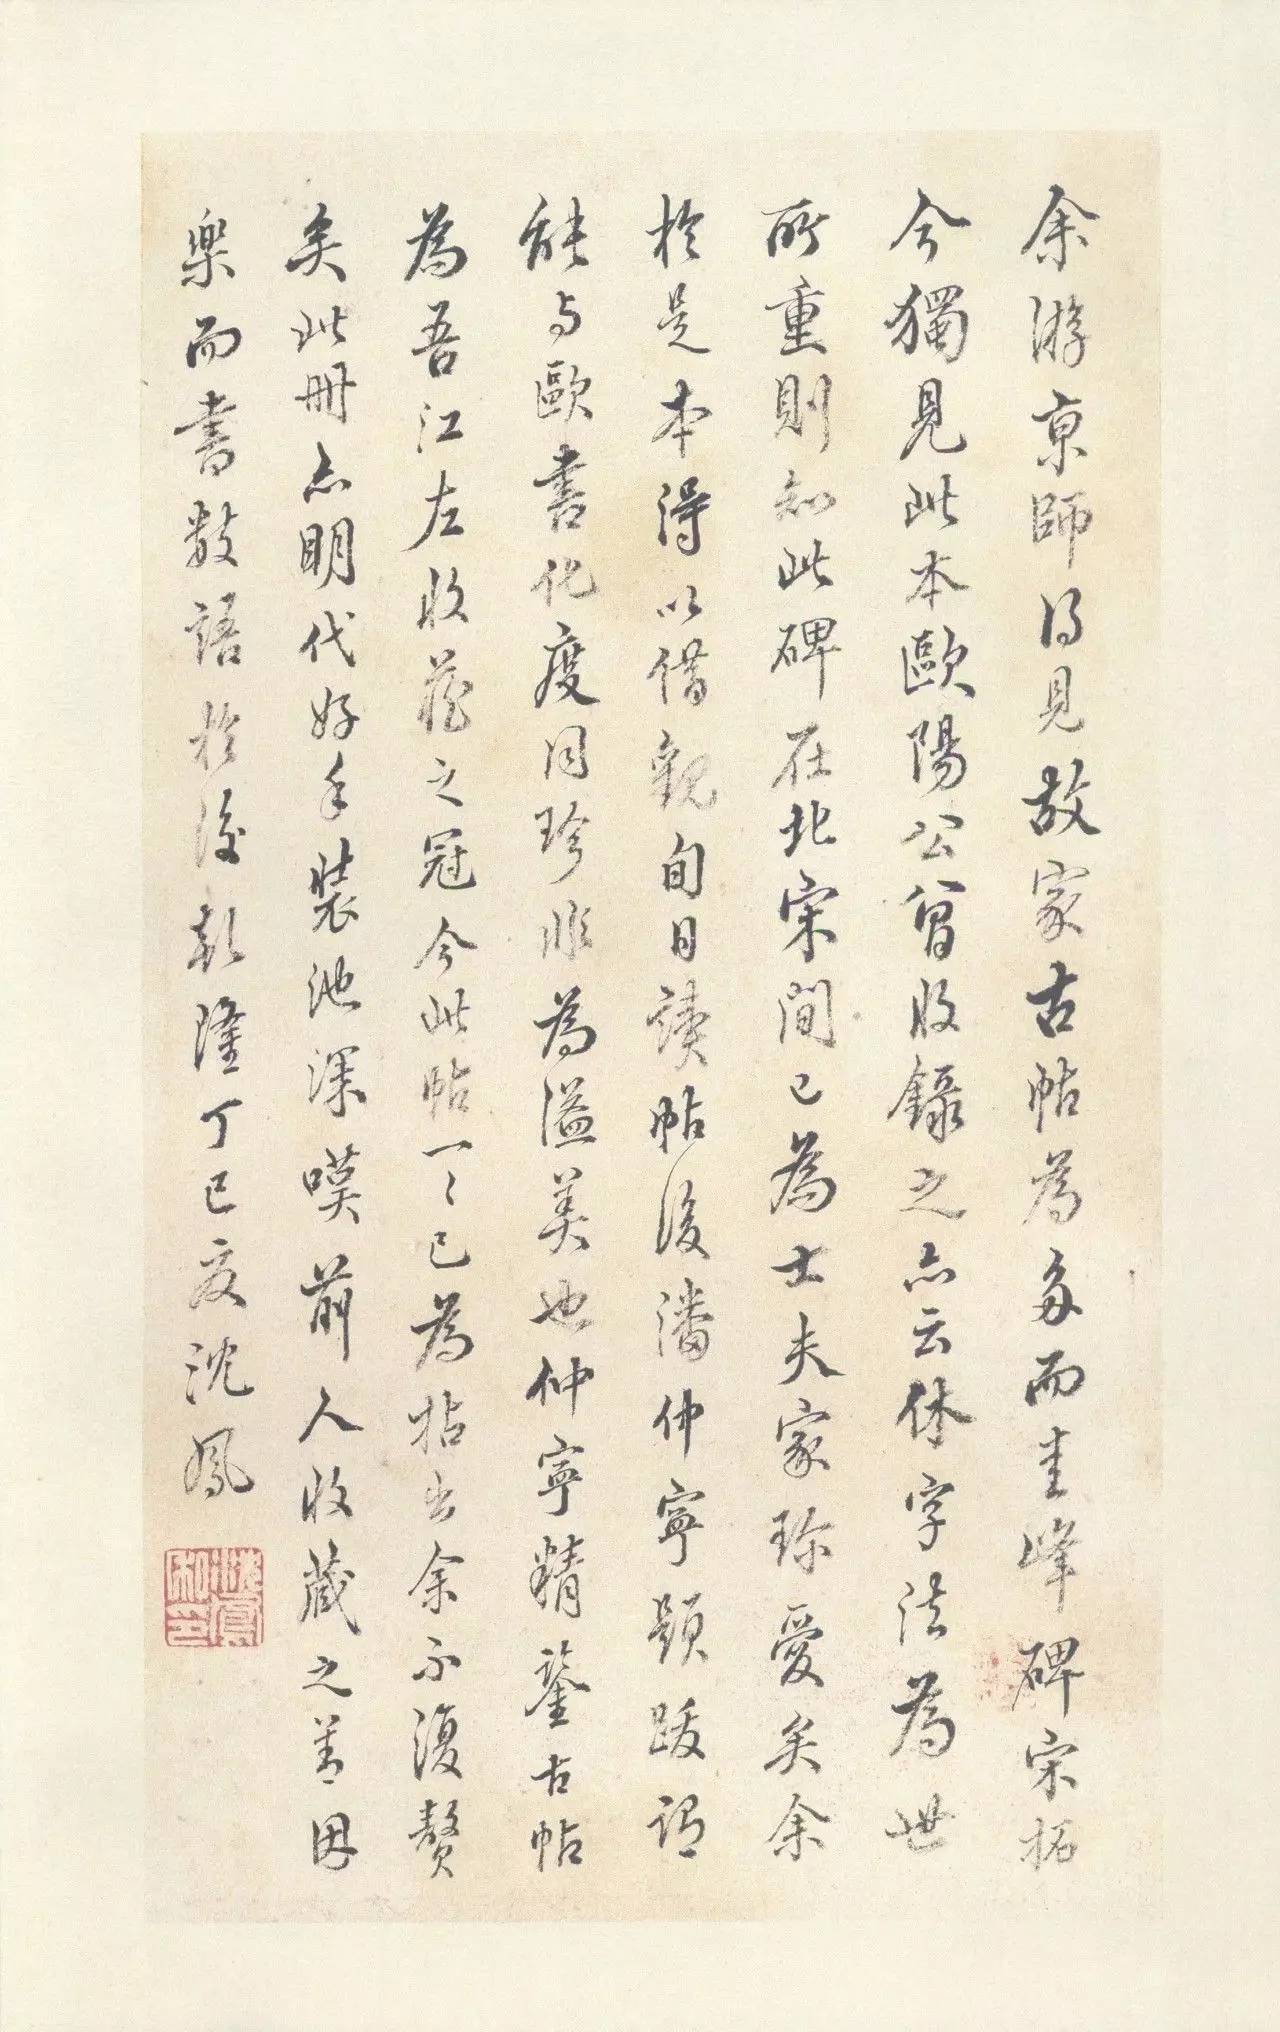 余游京師得見故家古帖為多而圭峰碑宋拓
今獨見此本歐陽公曾收錄之亦云休字法為世
所重則知此碑在北宋間已為士夫家珎愛矣余
於是本得以借觀旬日讀帖後潘仲寧題跋謂
能与歐書化度同珍非為溢美也仲寧精鑒古帖
為吾江左收藏之冠今此帖一〻已為拈出余不復贅
矣此冊亦明代好手裝池深嘆前人收藏之善因
樂而書數語於後乾隆丁巳夏沈鳳